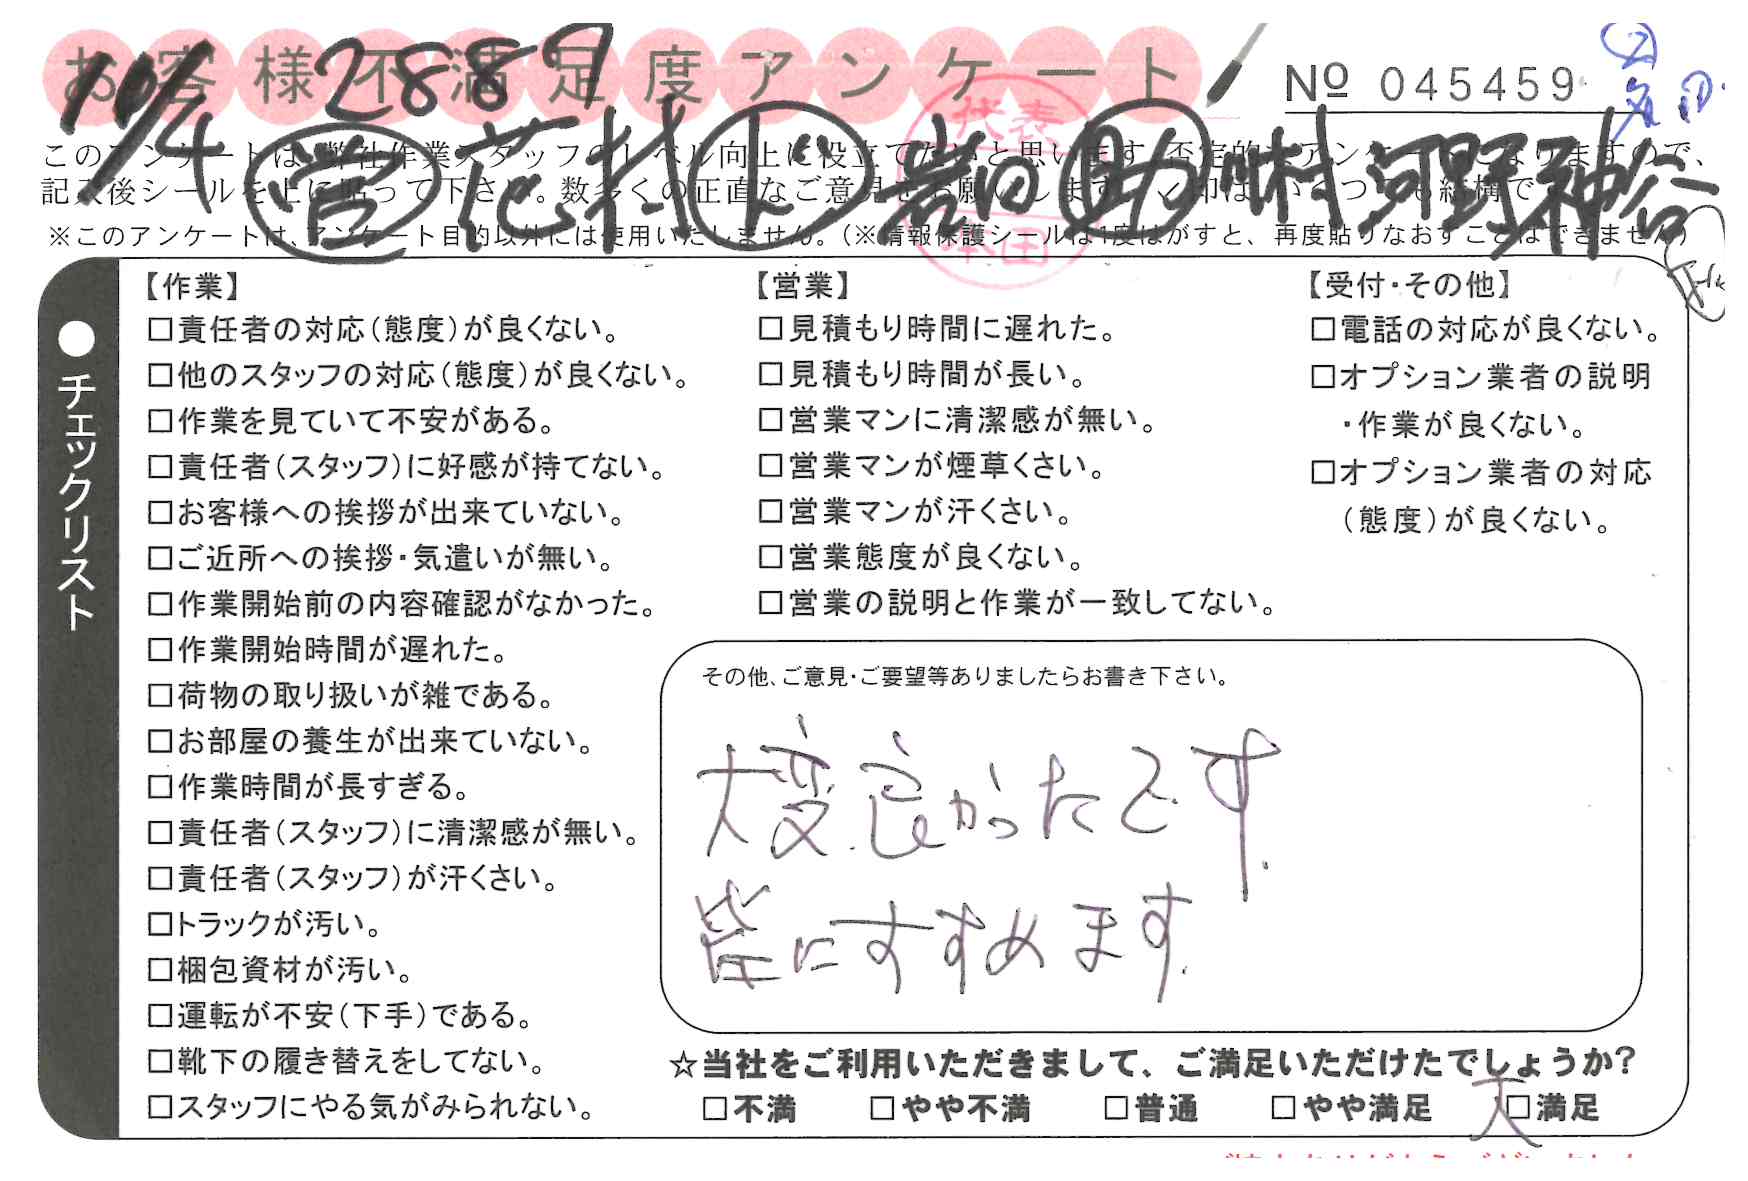 お客様不満足度アンケート
№ 045459
10/4 2889
営 花村 ド 岩田 助 川村 河野 神谷
代表
本田
このアンケートは、弊社作業スタッフのレベル向上に役立てたいと思います。否定的なアンケートになりますので、
記入後シールを上に貼って下さい。数多くの正直なご意見をお願いします。✓印はいくつでも結構です。
※このアンケートは、アンケート目的以外には使用いたしません。（※情報保護シールは1度はがすと、再度貼りなおすことはできません）
●チェックリスト
【作業】
□責任者の対応（態度）が良くない。
□他のスタッフの対応（態度）が良くない。
□作業を見ていて不安がある。
□責任者（スタッフ）に好感が持てない。
□お客様への挨拶が出来ていない。
□ご近所への挨拶・気遣いが無い。
□作業開始前の内容確認がなかった。
□作業開始時間が遅れた。
□荷物の取り扱いが雑である。
□お部屋の養生が出来ていない。
□作業時間が長すぎる。
□責任者（スタッフ）に清潔感が無い。
□責任者（スタッフ）が汗くさい。
□トラックが汚い。
□梱包資材が汚い。
□運転が不安（下手）である。
□靴下の履き替えをしてない。
□スタッフにやる気がみられない。
【営業】
□見積もり時間に遅れた。
□見積もり時間が長い。
□営業マンに清潔感が無い。
□営業マンが煙草くさい。
□営業マンが汗くさい。
□営業態度が良くない。
□営業の説明と作業が一致してない。
【受付・その他】
□電話の対応が良くない。
□オプション業者の説明
・作業が良くない。
□オプション業者の対応
（態度）が良くない。
その他、ご意見・ご要望等ありましたらお書き下さい。
大変良かったです.
皆にすすめます.
☆当社をご利用いただきまして、ご満足いただけたでしょうか?
□不満 □やや不満 □普通 □やや満足 大□満足